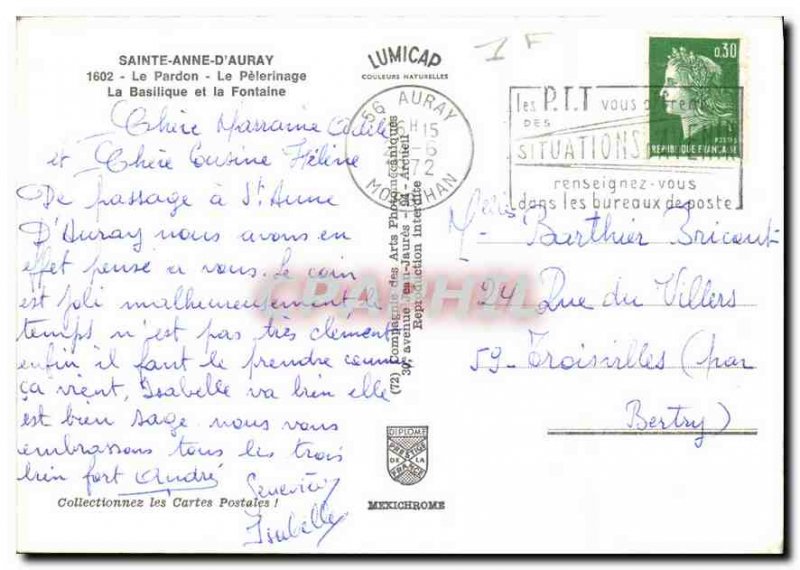 SAINTE-ANNE-D'AURAY
1602 - Le Pardon - Le Pèlerinage
La Basilique et la Fontaine
Chère Marraine Adèle
et Chère Cousine Hélène
De passage à St Anne
D'Auray nous avons en
effet pensé a vous. le coin
est joli malheureusement, le
temps n'est pas très clément
enfin il faut le prendre comme
ça vient, Isabelle va bien elle
est bien sage nous vous
embrassons tous les trois
bien fort André
Geneviève
Isabelle
Collectionnez les Cartes Postales !
LUMICAP
COULEURS NATURELLES
1F
56 AURAY
H 15
6
72
MORBIHAN
(72) Compagnie des Arts Photomécaniques
30, avenue Jean-Jaurès - 94 - Arcueil
Reproduction interdite
CPAPHIL
DIPLOME
PRESTIGE
DE LA
FRANCE
MEXICHROME
0,30
POSTES
REPUBLIQUE FRANÇAISE
les P.T.T vous offrent
DES
SITUATIONS D'AVENIR
renseignez-vous
dans les bureaux de poste
Barthier Bricout
24 Rue du Villers
59 - Troisvilles (par
Bertry)